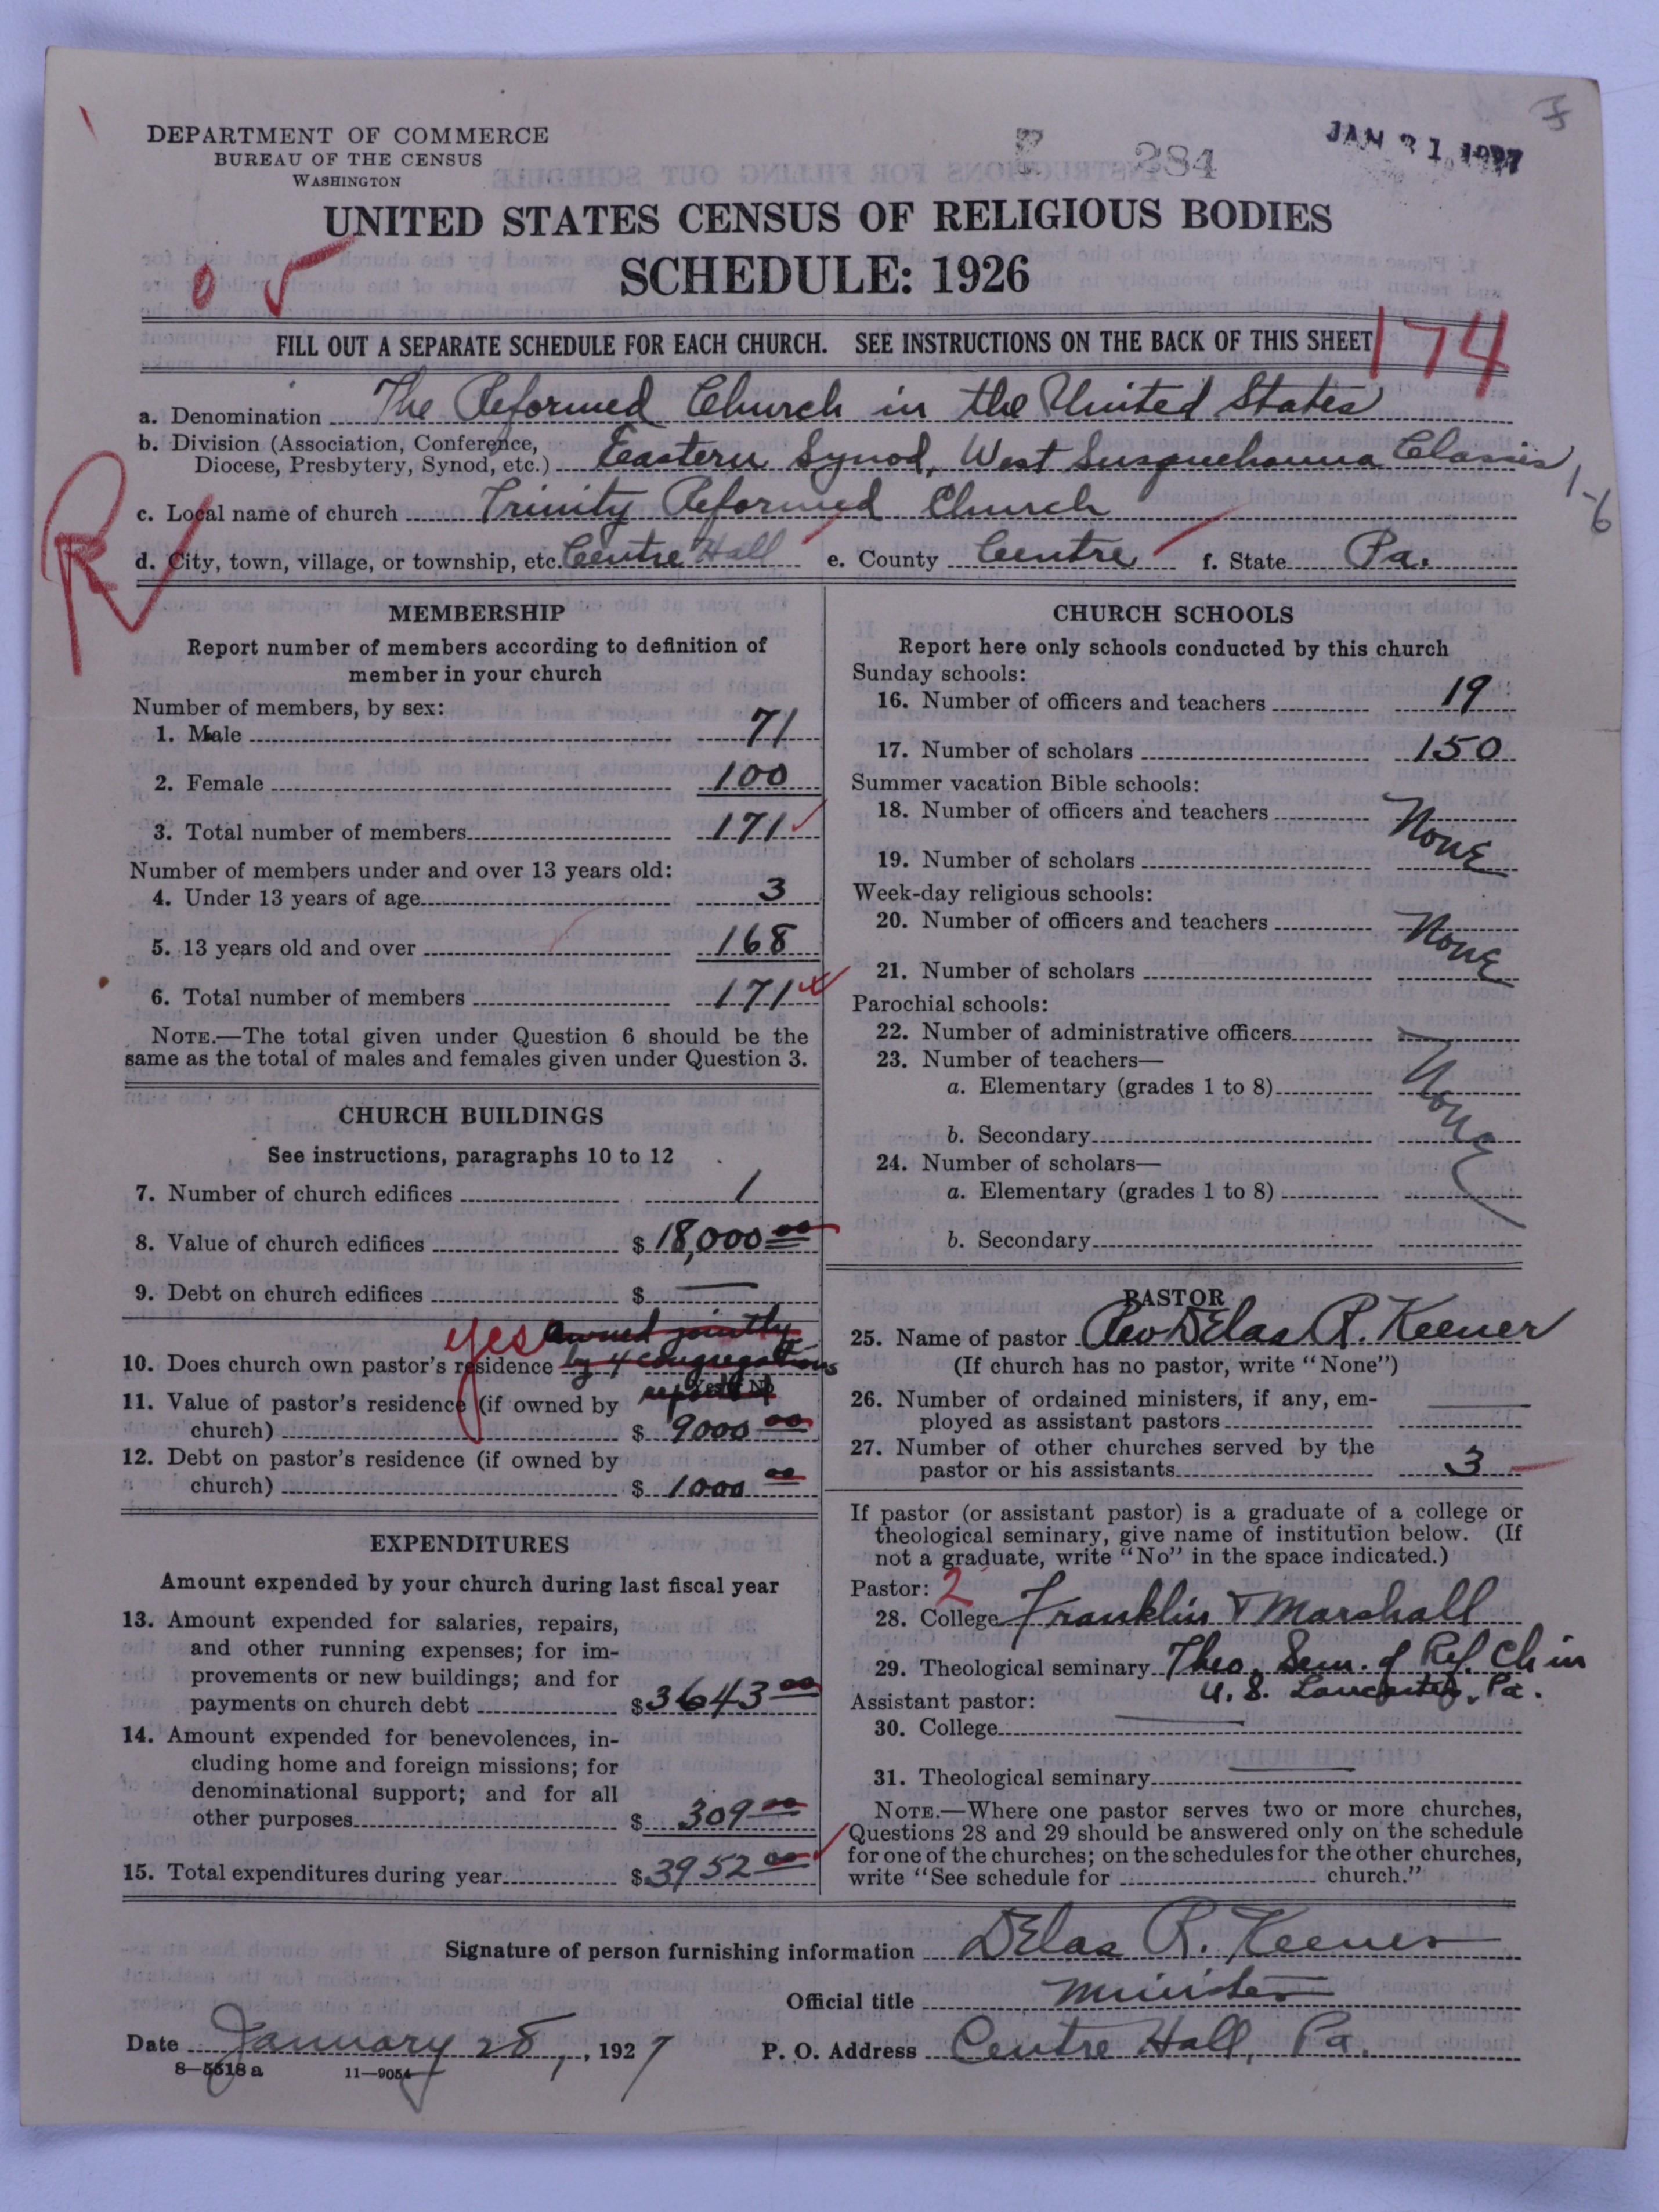 DEPARTMENT OF COMMERCE
BUREAU OF THE CENSUS
WASHINGTON
284
JAN 31 1927
UNITED STATES CENSUS OF RELIGIOUS BODIES
SCHEDULE: 1926
FILL OUT A SEPARATE SCHEDULE FOR EACH CHURCH. SEE INSTRUCTIONS ON THE BACK OF THIS SHEET
174
a. Denomination The Reformed Church in the United States
b. Division (Association, Conference, Diocese, Presbytery, Synod, etc.) Eastern Synod, West Susquehanna Classis
1-6
c. Local name of church Trinity Reformed Church
d. City, town, village, or township, etc. Centre Hall e. County Centre f. State Pa.
R
MEMBERSHIP
Report number of members according to definition of
member in your church
Number of members, by sex:
1. Male 71
2. Female 100
3. Total number of members 171
Number of members under and over 13 years old:
4. Under 13 years of age 3
5. 13 years old and over 168
6. Total number of members 171
NOTE.—The total given under Question 6 should be the
same as the total of males and females given under Question 3.
CHURCH BUILDINGS
See instructions, paragraphs 10 to 12
7. Number of church edifices 1
8. Value of church edifices $ 18,000 00
9. Debt on church edifices $ —
yes owned jointly
10. Does church own pastor's residence by 4 congregations
11. Value of pastor's residence (if owned by
church) $ 9000 00
12. Debt on pastor's residence (if owned by
church) $ 1000 00
EXPENDITURES
Amount expended by your church during last fiscal year
13. Amount expended for salaries, repairs,
and other running expenses; for im-
provements or new buildings; and for
payments on church debt $ 3643 00
14. Amount expended for benevolences, in-
cluding home and foreign missions; for
denominational support; and for all
other purposes $ 309 00
15. Total expenditures during year $ 3952 00
CHURCH SCHOOLS
Report here only schools conducted by this church
Sunday schools:
16. Number of officers and teachers 19
17. Number of scholars 150
Summer vacation Bible schools:
18. Number of officers and teachers None
19. Number of scholars
Week-day religious schools:
20. Number of officers and teachers None
21. Number of scholars
Parochial schools:
22. Number of administrative officers
23. Number of teachers—
a. Elementary (grades 1 to 8) None
b. Secondary
24. Number of scholars—
a. Elementary (grades 1 to 8)
b. Secondary
PASTOR
25. Name of pastor Rev DElas R. Keener
(If church has no pastor, write "None")
26. Number of ordained ministers, if any, em-
ployed as assistant pastors —
27. Number of other churches served by the
pastor or his assistants 3
If pastor (or assistant pastor) is a graduate of a college or
theological seminary, give name of institution below. (If
not a graduate, write "No" in the space indicated.)
Pastor: 2
28. College Franklin & Marshall
29. Theological seminary Theo. Sem. of Ref. Ch in
U. S. Lancaster, Pa.
Assistant pastor:
30. College —
31. Theological seminary —
NOTE.—Where one pastor serves two or more churches,
Questions 28 and 29 should be answered only on the schedule
for one of the churches; on the schedules for the other churches,
write "See schedule for church."
Signature of person furnishing information DElas R. Keener
Official title Minister
Date January 28, 1927 P. O. Address Centre Hall, Pa.
8—5518 a 11—9054